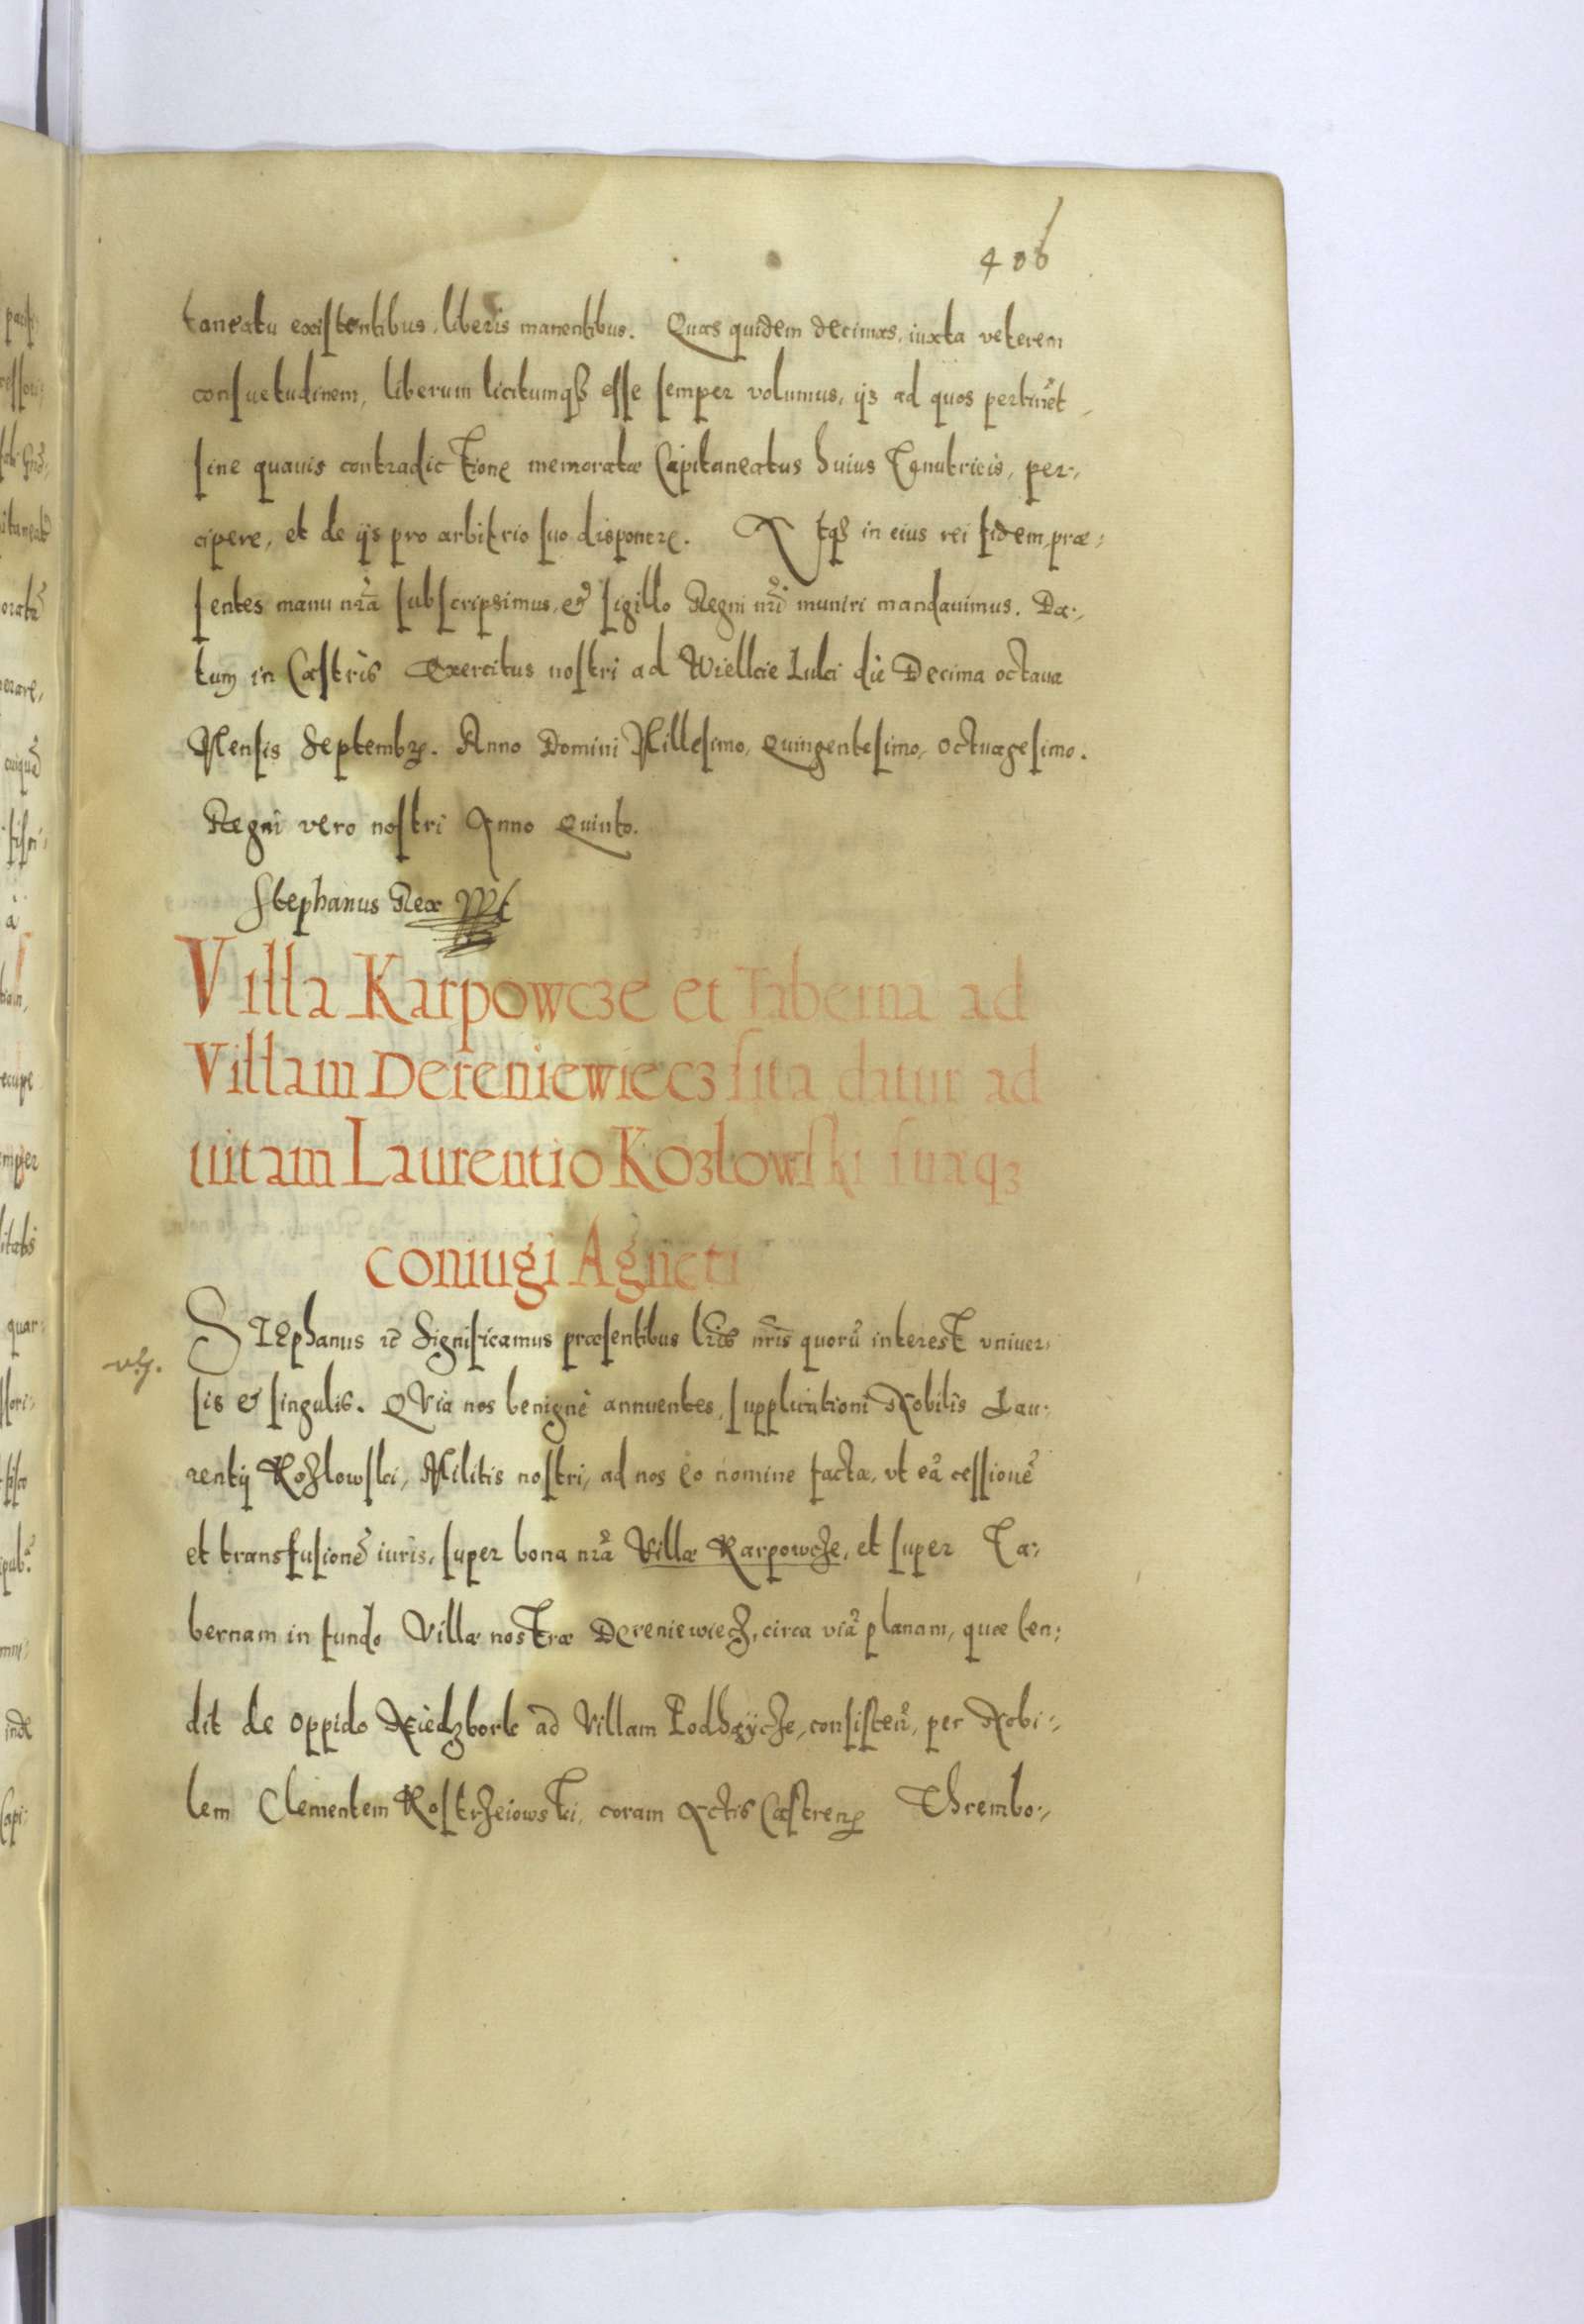 406
taneatu existentibus, liberis manentibus. Quas quidem decimas, iuxta veterem
consuetudinem, liberum licitumqȝ esse semper volumus, ijs ad quos pertinẽt,
sine quauis contradictione memoratæ Capitaneatus huius Tenutricis, per-
cipere, et de ijs pro arbitrio suo disponere. Atqȝ in eius rei fidem, præ-
sentes manu nr̃a subscripsimus, et sigillo Regni nr̃i muniri mandauimus. Da-
tum in Castris Exercitus nostri ad Wielkie Luki die Decima octaua
Mensis Septembr. Anno Domini Millesimo, Quingentesimo, octuagesimo.
Regni vero nostri Anno Quinto.
Stephanus Rex
Villa Karpowcze et Taberna ad
Villam Dereniewiecz sita datur ad
uitam Laurentio Kozlowski suæqȝ
coniugi Agneti
STEphanus etc̃ Significamus præsentibus lr̃is nr̃is quorũ interest vniuer-
sis et singulis. QVia nos benignè annuentes, supplicationi Nobilis Lau-
rentij Kozlowski, Militis nostri, ad nos eo nomine factæ, vt eã cessionẽ
et transfusionẽ iuris, super bona nr̃a Villæ Karpowcze, et super Ta-
bernam in fundo Villæ nostræ Dereniewiecz, circa viã planam, quæ ten-
dit de oppido Xiedzbork ad Villam Podhaÿcze, consisteñ, per Nobi-
lem Clementem Kostrzeiowski, coram Actis Castreñ Thrembo-